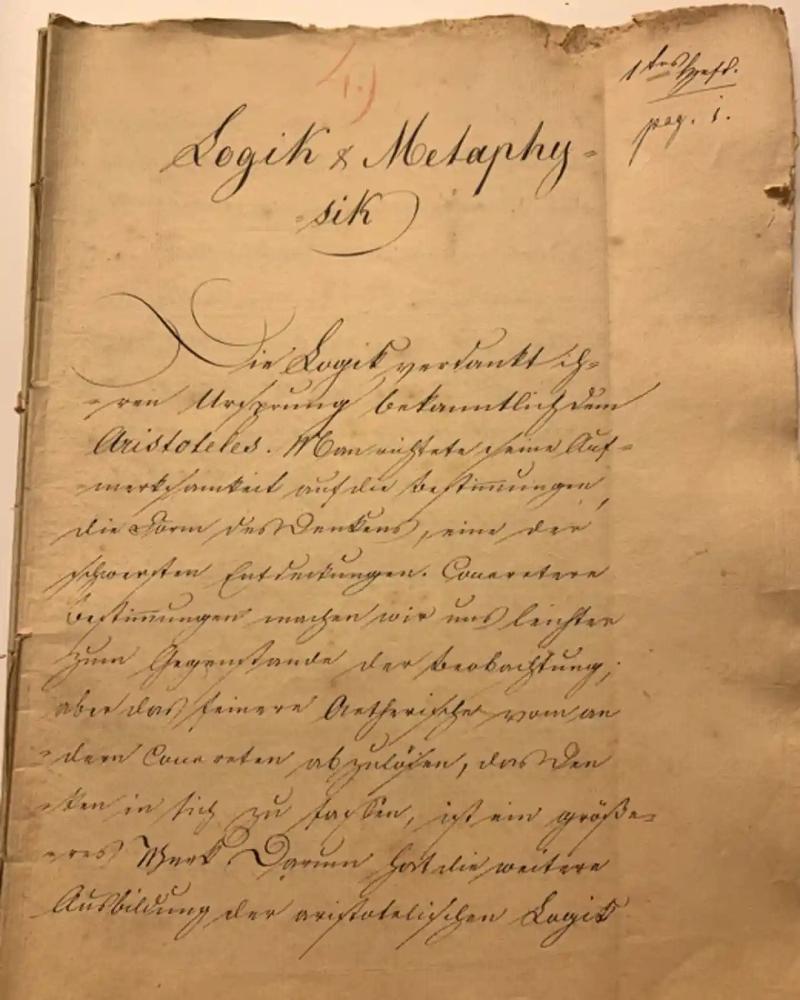 4.)
1tes Heft.
pag. 1.
Logik & Metaphy-
-sik
Die Logik verdankt ih-
-ren Ursprung bekanntlich dem
Aristoteles. Man richtete seine Auf-
-merksamkeit auf die Bestimmungen,
die Form des Denkens, eine der
schwersten Entdeckungen. Concretere
Bestimmungen machen wir uns leichter
zum Gegenstande der Beobachtung;
aber das feinere Aetherische vom an
-dern Concreten abzulösen, das Den
-ken in sich zu fassen, ist ein größe-
-res Werk Darum hat die weitere
Ausbildung der aristotelischen Logik